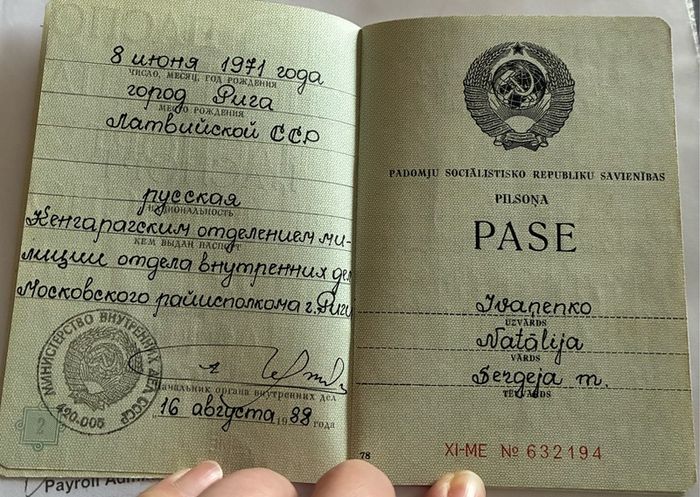 8 июня 1971 года
ЧИСЛО, МЕСЯЦ, ГОД РОЖДЕНИЯ
город Рига
МЕСТО РОЖДЕНИЯ
Латвийской ССР
русская
НАЦИОНАЛЬНОСТЬ
Кенгарагским отделением ми-
КЕМ ВЫДАН ПАСПОРТ
лиции отдела внутренних дел
Московского райисполкома г. Риги
МИНИСТЕРСТВО ВНУТРЕННИХ ДЕЛ СССР
420-005
Начальник органа внутренних дел
16 августа 1988 года
2
PADOMJU SOCIĀLISTISKO REPUBLIKU SAVIENĪBAS
PILSOŅA
PASE
Ivaņenko
UZVĀRDS
Natālija
VĀRDS
Sergeja m.
TĒVVĀRDS
78
XI-ME № 632194
Payroll